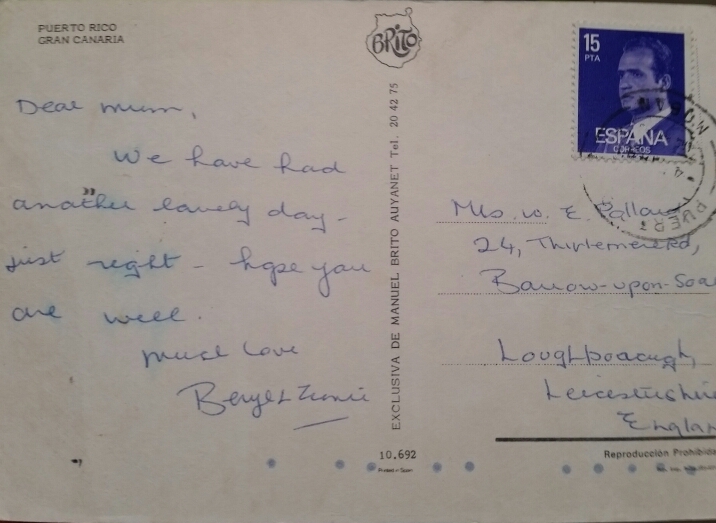 PUERTO RICO
GRAN CANARIA
BRITO
15
PTA
ESPAÑA
CORREOS
MOGAN
PUERT
Dear Mum,
We have had
another lovely day -
just right - hope you
are well.
Much love
Beryl &
EXCLUSIVA DE MANUEL BRITO AUYANET Tel. 20 42 75
Mrs. W. E.
24, Thirlemere Rd,
Barrow-upon-Soar
Loughborough,
Leicestershire
England
10.692
Printed in Spain
Reproducción Prohibida